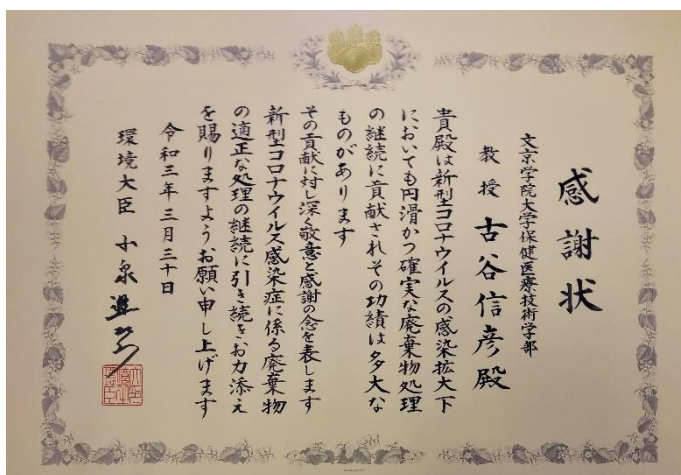 感謝状
文京学院大学保健医療技術学部
教授 古谷信彦殿
貴殿は新型コロナウイルスの感染拡大下
においても円滑かつ確実な廃棄物処理
の継続に貢献されその功績は多大な
ものがあります
その貢献に対し深く敬意と感謝の念を表します
新型コロナウイルス感染症に係る廃棄物
の適正な処理の継続に引き続きお力添え
を賜りますようお願い申し上げます
令和三年三月三十日
環境大臣 小泉進